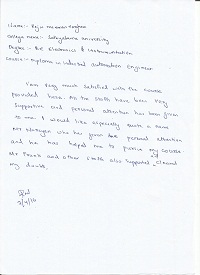 Name:- Raju
College name:- Sathyabama university
Degree :- B.E Electronics & Instrumentation
Course:- Diploma in industrial automation engineer
I am very much satisfied with the course
provided here. As the staffs have been very
supportive and personal attention has been given
to me. I would like especially such a name
Mr who has given me personal attention
and he has helped me to pursue my course.
Mr and other staffs also supported and cleared
my doubts.